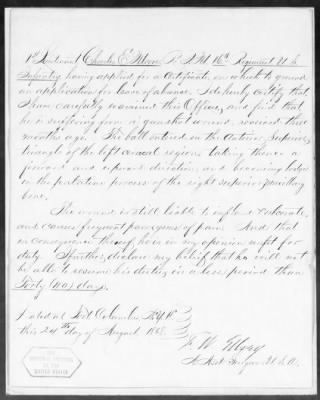 1st Lieutenant Charles E. Moore R.Q.M 16th Regiment U.S.
Infantry having applied for a Certificate, on which to ground
an application for leave of absence. I do hereby certify that
I have carefully examined this Officer, and find that
he is suffering from a gunshot wound, received three
months ago. The ball entered in the Anterior Superior
triangle of the left cervical region, taking thence a
forward and upward direction, and becoming lodged
in the palatine process of the right superior maxillary
bone.
The wound is still liable to inflame and ulcerate,
and causes frequent paroxysms of pain. And that
in consequence thereof, he is in my opinion unfit for
duty. I further, declare my belief that he will not
be able to resume his duties in a less period than
Forty days.
Dated at Fort Columbus N.Y.H.
this 24th day of August 1868.
Asst Surgeon U.S.A.
THE
NATIONAL ARCHIVES
OF THE
UNITED STATES